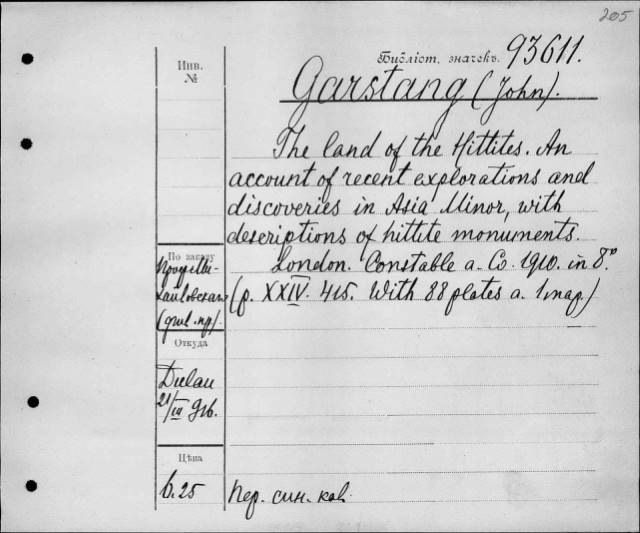 205
Библіот. значекъ 93611.
Инв.
№
Garstang (John).
The land of the Hittites. An
account of recent explorations and
discoveries in Asia Minor, with
descriptions of hittite monuments.
London. Constable a. Co. 1910. in 8°.
(p. XXIV. 415. With 88 plates a. 1 map.)
По заказу
Откуда
Dulau
916.
Цѣна
6.25
Пер. син. кол.